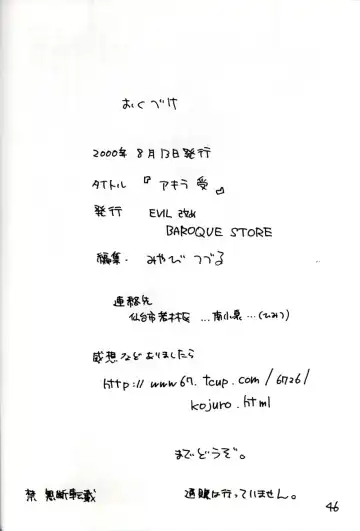 おくづけ
2000年 8月13日発行
タイトル 『アキラ 愛』
発行 EVIL 改め
BAROQUE STORE
編集・ みやび つづる
連絡先
仙台市若林区 ...南小泉...(ひみつ)
感想などありましたら
http://www67.tcup.com/6726/
kojuro.html
までどうぞ。
禁 無断転載 通販は行っていません。
46